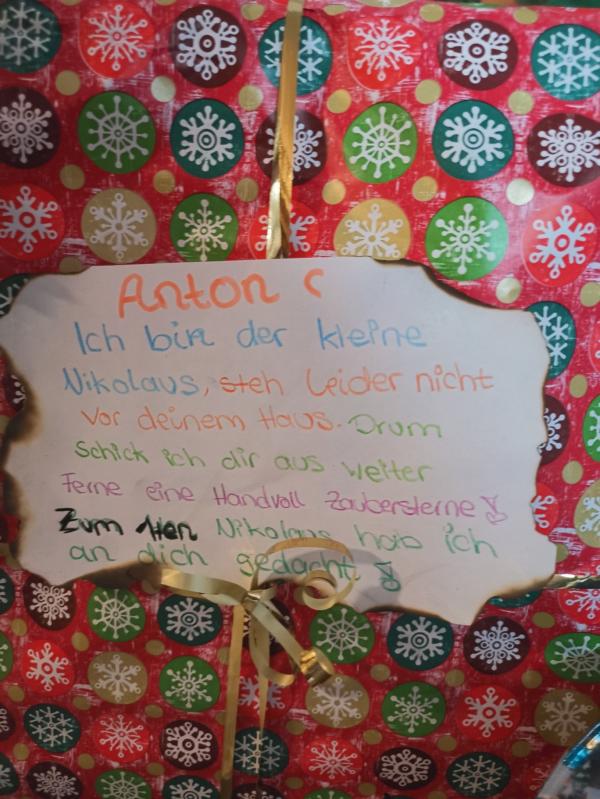 Anton C
Ich bin der kleine
Nikolaus, steh leider nicht
vor deinem Haus. Drum
schick ich dir aus weiter
Ferne eine Handvoll Zaubersterne
Zum Nikolaus hab ich
an dich gedacht